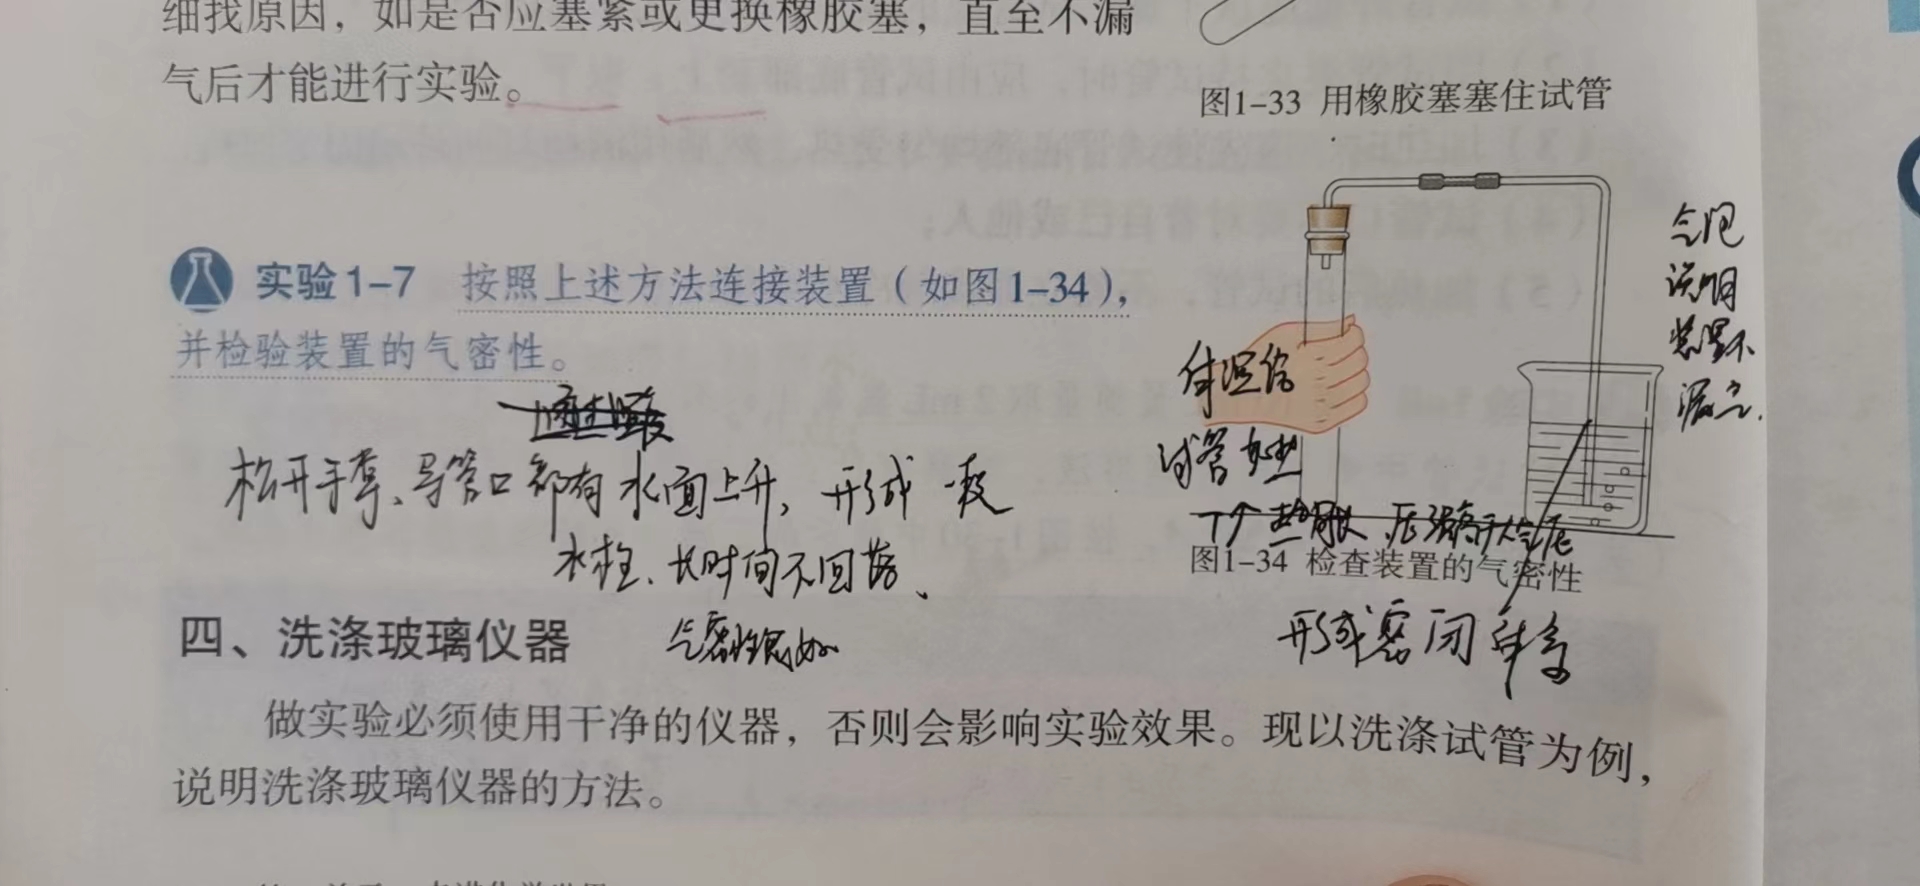 细找原因，如是否应塞紧或更换橡胶塞，直至不漏
气后才能进行实验。
图1-33 用橡胶塞塞住试管
实验1-7 按照上述方法连接装置（如图1-34），
并检验装置的气密性。
松开手掌、导管口部有水面上升，形成一段
水柱、长时间不回落、
气密性良好
气泡
说明
装置不
漏气.
体温给
试管加热
T↑ 热胀
图1-34 检查装置的气密性
形成密闭体系
四、洗涤玻璃仪器
做实验必须使用干净的仪器，否则会影响实验效果。现以洗涤试管为例，
说明洗涤玻璃仪器的方法。